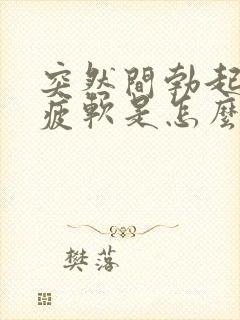 突然間勃起
疲軟是怎麼
樊落